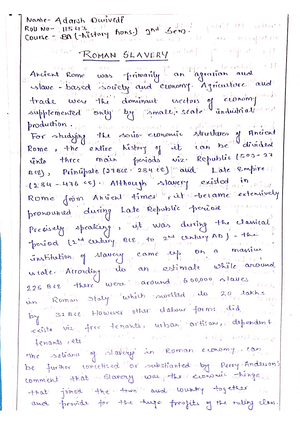 Name- Adarsh Dwivedi
Roll No- 11542
Course - BA (History Hons.) 2nd Sem.
ROMAN SLAVERY
Ancient Rome was primarily an agrarian and
slave-based society and economy. Agriculture and
trade were the dominant sectors of economy
supplemented only by small-scale industrial
production.
For studying the socio-economic structures of Ancient
Rome, the entire history of it can be divided
into three main periods viz. Republic (509-27
BCE), Principate (27BCE-284 CE) and Late Empire
(284-476 CE). Although slavery existed in
Rome from Ancient times, it became extensively
pronounced during Late Republic period
Precisely speaking, it was during the classical
period (2nd century BCE to 2nd century AD) - the
institution of slavery came up on a massive
scale. According to an estimate while around
225 BCE there were around 600,000 slaves
in Roman Italy which swelled to 20 lakhs
by 31 BCE. However other labour forms did
exist viz free tenants, urban artisans, dependent
tenants etc
The salience of slavery in Roman economy can
be further concretised or substantiated by Perry Anderson's
comment that Slavery was the economic hinge
that joined the town and country together
and provide for the huge profits of the ruling class.